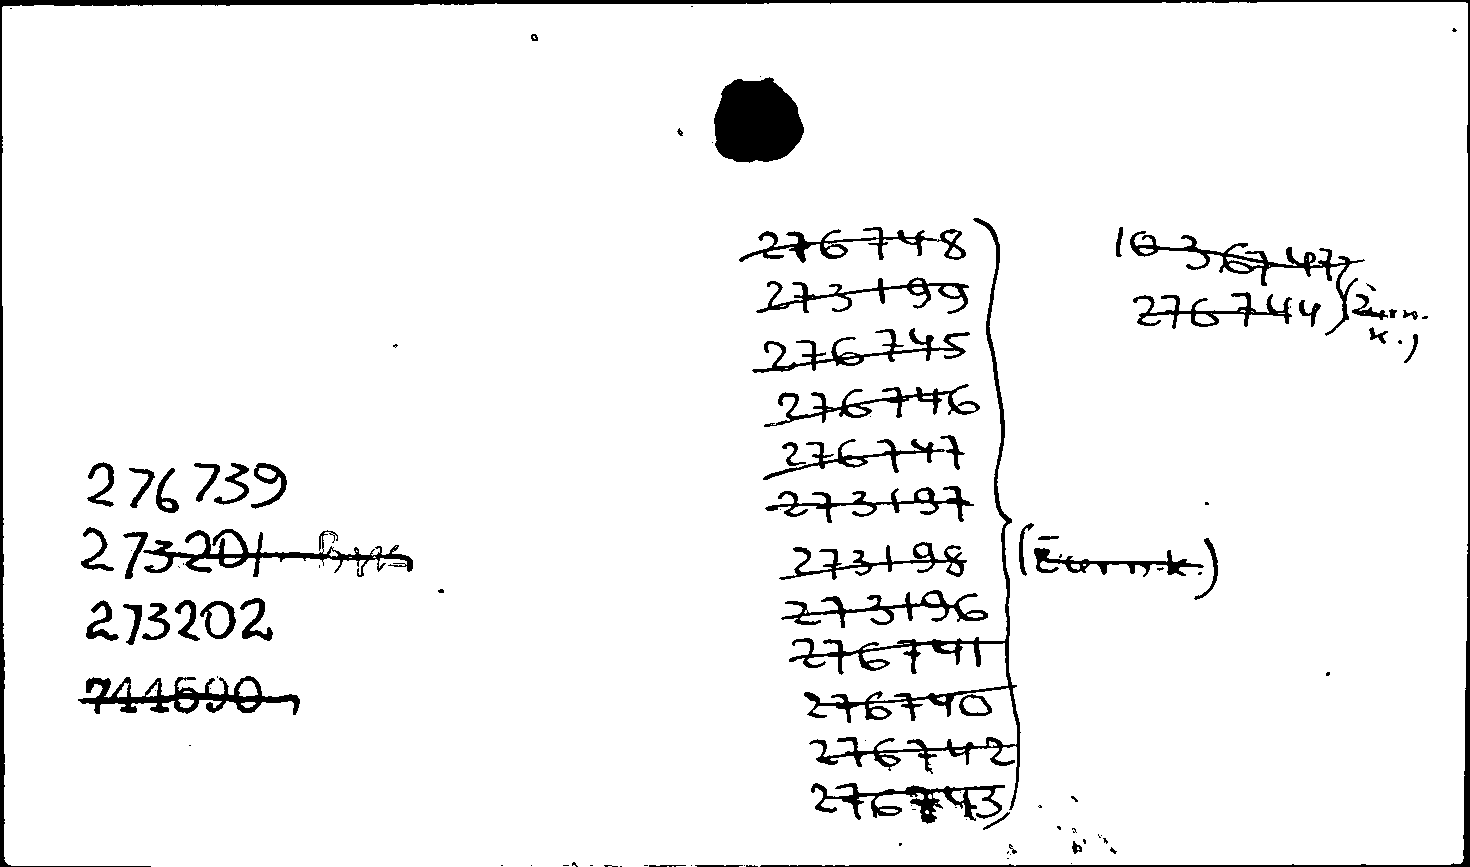 276739
273201
273202
744690
276748
273199
276745
276746
276747
273197
273198
273196
276741
276740
276742
276743
276744